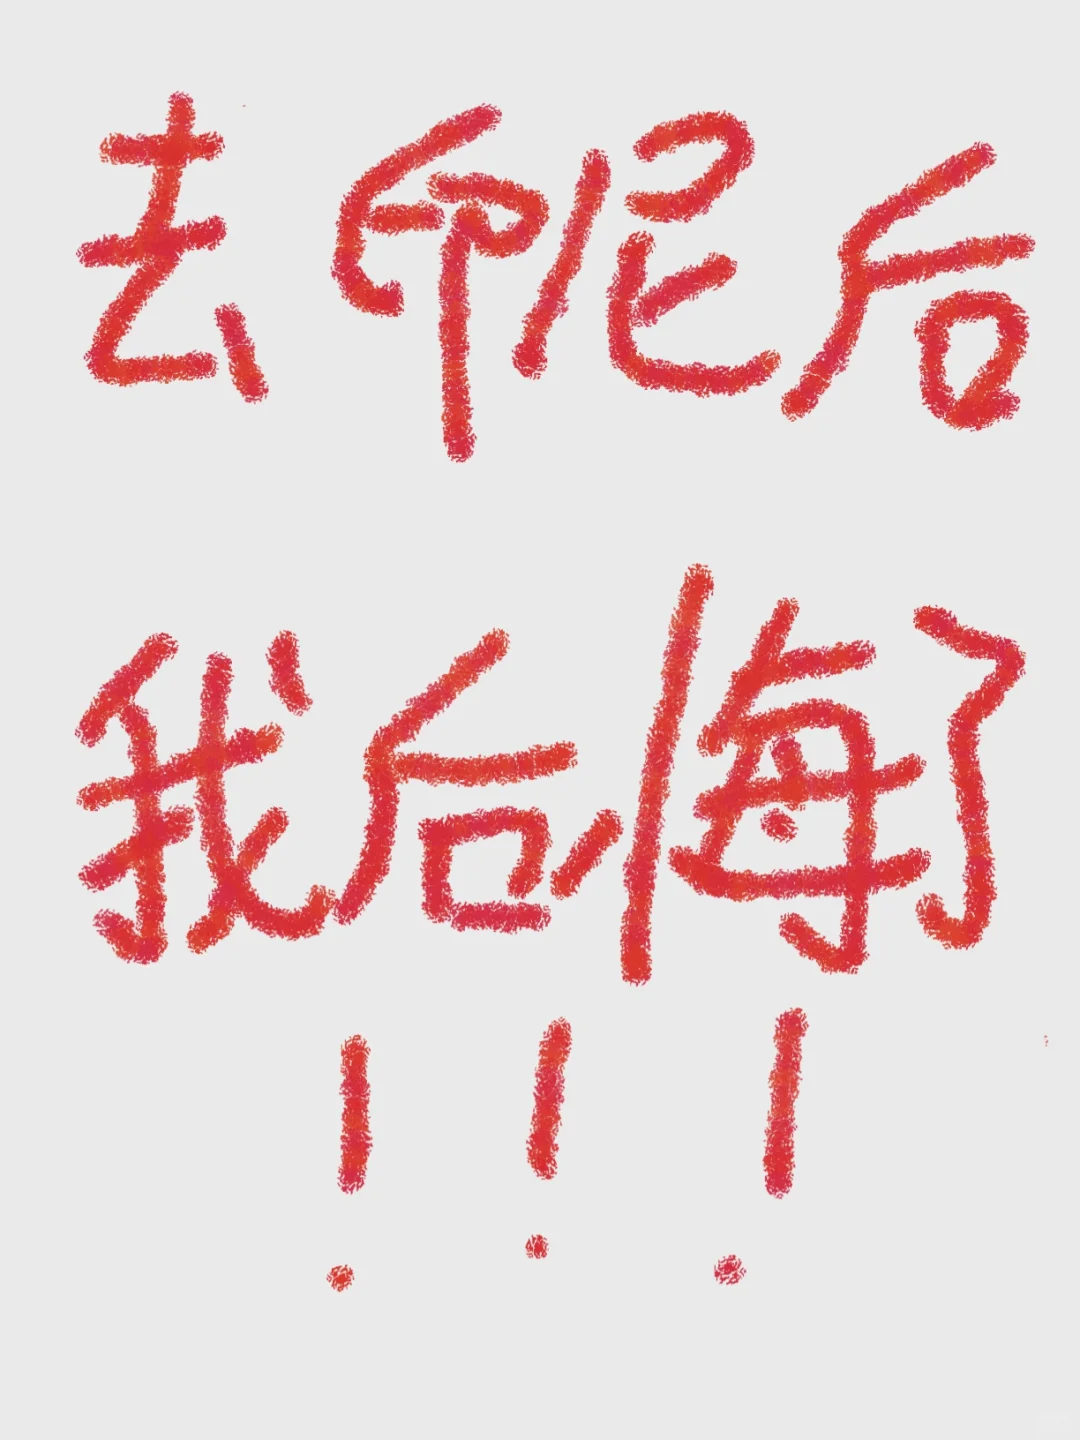 去印尼后
我后悔了
!!!